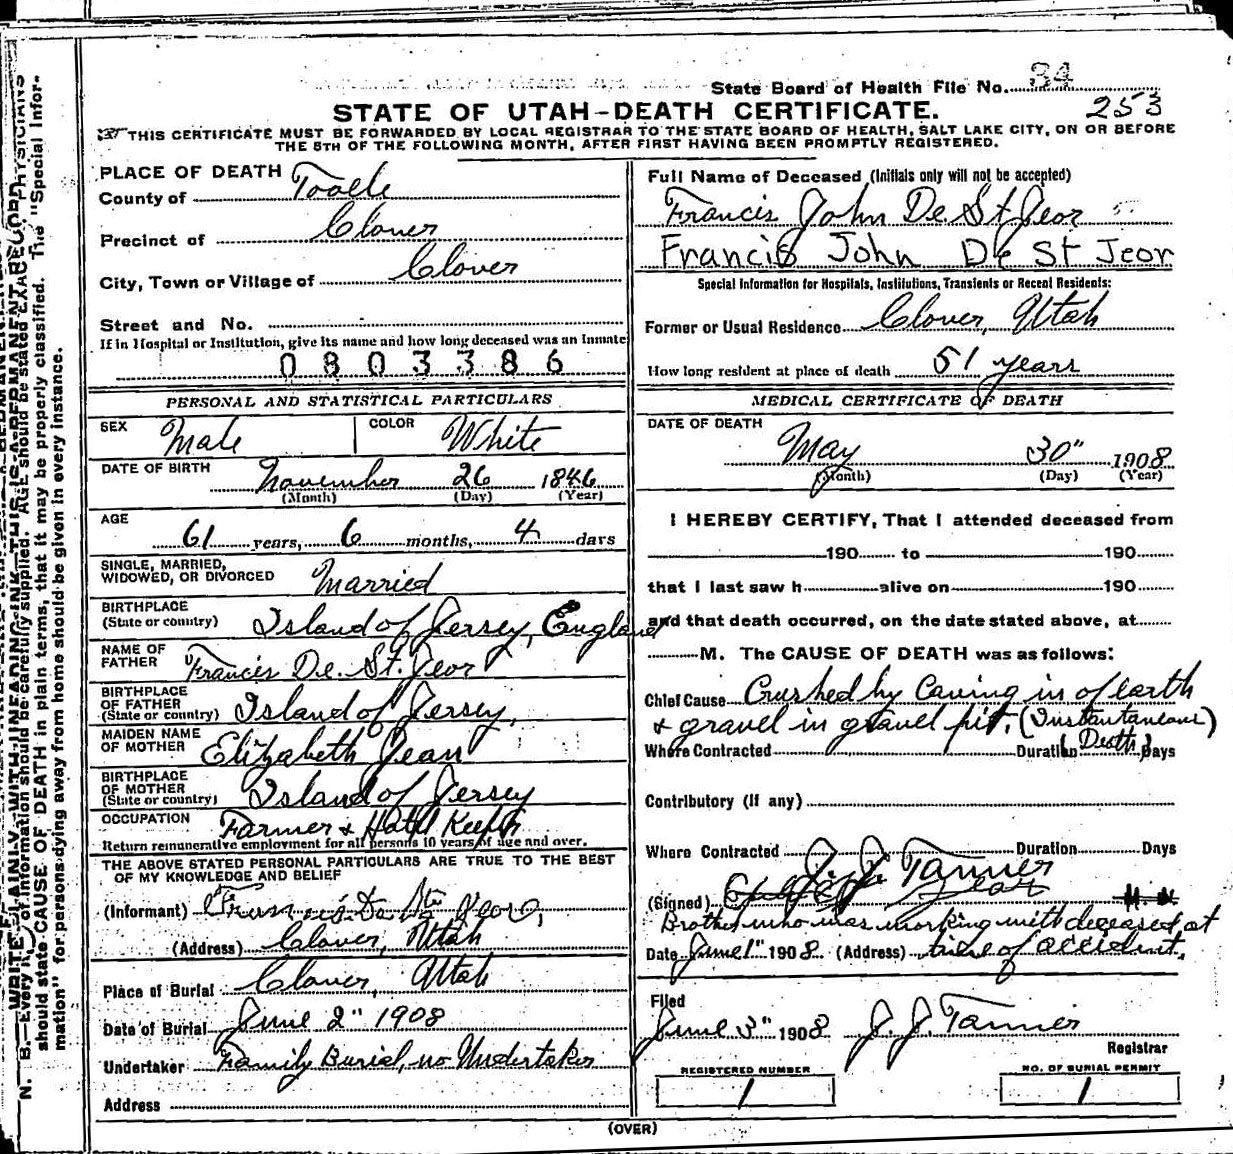 State Board of Health File No. 34
253
STATE OF UTAH—DEATH CERTIFICATE.
THIS CERTIFICATE MUST BE FORWARDED BY LOCAL REGISTRAR TO THE STATE BOARD OF HEALTH, SALT LAKE CITY, ON OR BEFORE
THE 5TH OF THE FOLLOWING MONTH, AFTER FIRST HAVING BEEN PROMPTLY REGISTERED.
PLACE OF DEATH
County of Tooele
Precinct of Clover
City, Town or Village of Clover
Street and No.
If in Hospital or Institution, give its name and how long deceased was an Inmate
0803386
PERSONAL AND STATISTICAL PARTICULARS
SEX Male COLOR White
DATE OF BIRTH November 26 1846
(Month) (Day) (Year)
AGE
61 years, 6 months, 4 days
SINGLE, MARRIED,
WIDOWED, OR DIVORCED Married
BIRTHPLACE
(State or country) Island of Jersey, England
NAME OF
FATHER Francis De. St. Jeor
BIRTHPLACE
OF FATHER
(State or country) Island of Jersey,
MAIDEN NAME
OF MOTHER Elizabeth Jean
BIRTHPLACE
OF MOTHER
(State or country) Island of Jersey
OCCUPATION Farmer & Hotel Keeper
Return remunerative employment for all persons 10 years of age and over.
THE ABOVE STATED PERSONAL PARTICULARS ARE TRUE TO THE BEST
OF MY KNOWLEDGE AND BELIEF
(Informant) Francis De St Jeor,
(Address) Clover, Utah
Place of Burial Clover, Utah
Date of Burial June 2" 1908
Undertaker Family Burial, no Undertaker
Address
Full Name of Deceased (Initials only will not be accepted)
Francis John De St Jeor
Francis John De St Jeor
Special Information for Hospitals, Institutions, Transients or Recent Residents:
Former or Usual Residence Clover, Utah
How long resident at place of death 51 years
MEDICAL CERTIFICATE OF DEATH
DATE OF DEATH
May 30" 1908
(Month) (Day) (Year)
I HEREBY CERTIFY, That I attended deceased from
190 to 190
that I last saw h alive on 190
and that death occurred, on the date stated above, at
M. The CAUSE OF DEATH was as follows:
Chief Cause Crushed by Caving in of earth
& gravel in gravel pit. (Instantaneous)
Where Contracted Duration (Death) Days
Contributory (if any)
Where Contracted Duration Days
J. J. Tanner
(Signed) Jear
Brother who was working with deceased at
Date June 1" 1908 (Address) time of accident.
Filed
June 3" 1908 J. J. Tanner
Registrar
REGISTERED NUMBER
1
NO. OF BURIAL PERMIT
1
(OVER)
N. B.—Every item of information should be carefully supplied. AGE should be stated EXACTLY. PHYSICIANS
should state CAUSE OF DEATH in plain terms, that it may be properly classified. The "Special Infor-
mation" for persons dying away from home should be given in every instance.